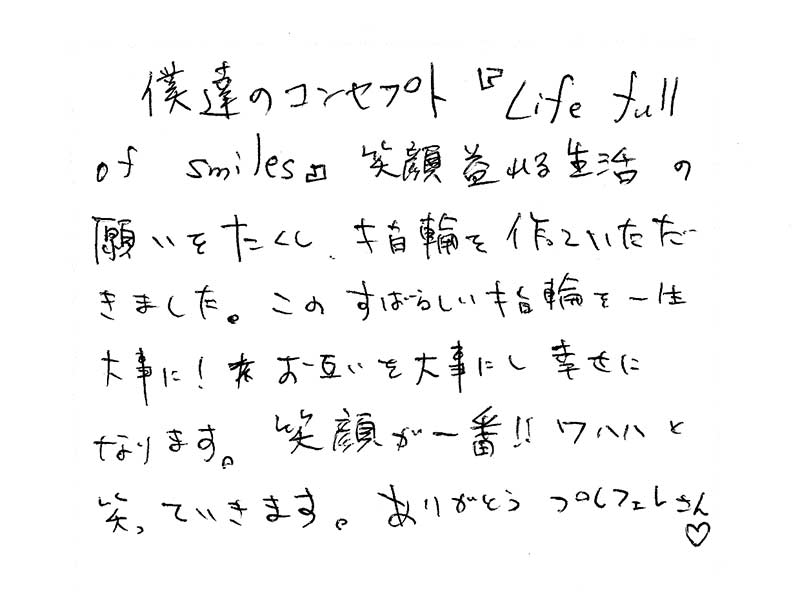 僕達のコンセプト『Life full
of smiles』笑顔溢れる生活の
願いをたくし、指輪を作っていただ
きました。このすばらしい指輪を一生
大事に！お互いを大事にし幸せに
なります。笑顔が一番!!ワハハと
笑っていきます。ありがとう プロフェレさん
♡